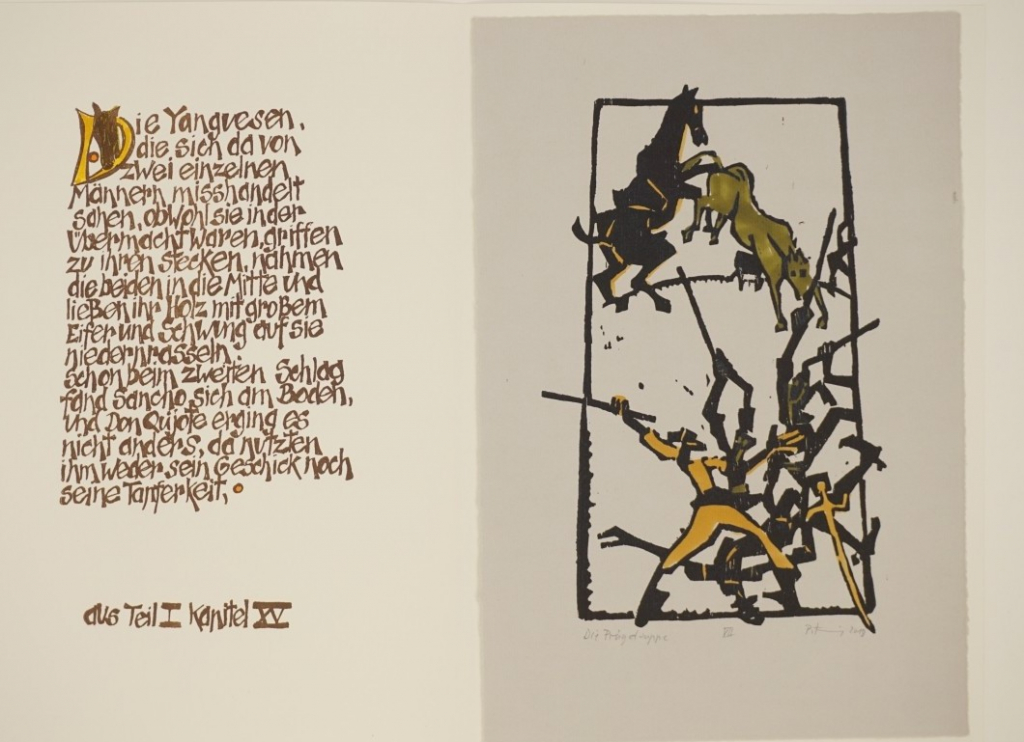 Die Yanguesen,
die sich da von
zwei einzelnen
Männern misshandelt
sahen, obwohl sie in der
Übermacht waren, griffen
zu ihren Stecken, nahmen
die beiden in die Mitte und
ließen ihr Holz mit großem
Eifer und Schwung auf sie
niederprasseln.
Schon beim zweiten Schlag
fand Sancho sich am Boden,
und Don Quijote erging es
nicht anders, da nutzten
ihm weder sein Geschick noch
seine Tapferkeit.
aus Teil I Kapitel XV
Die